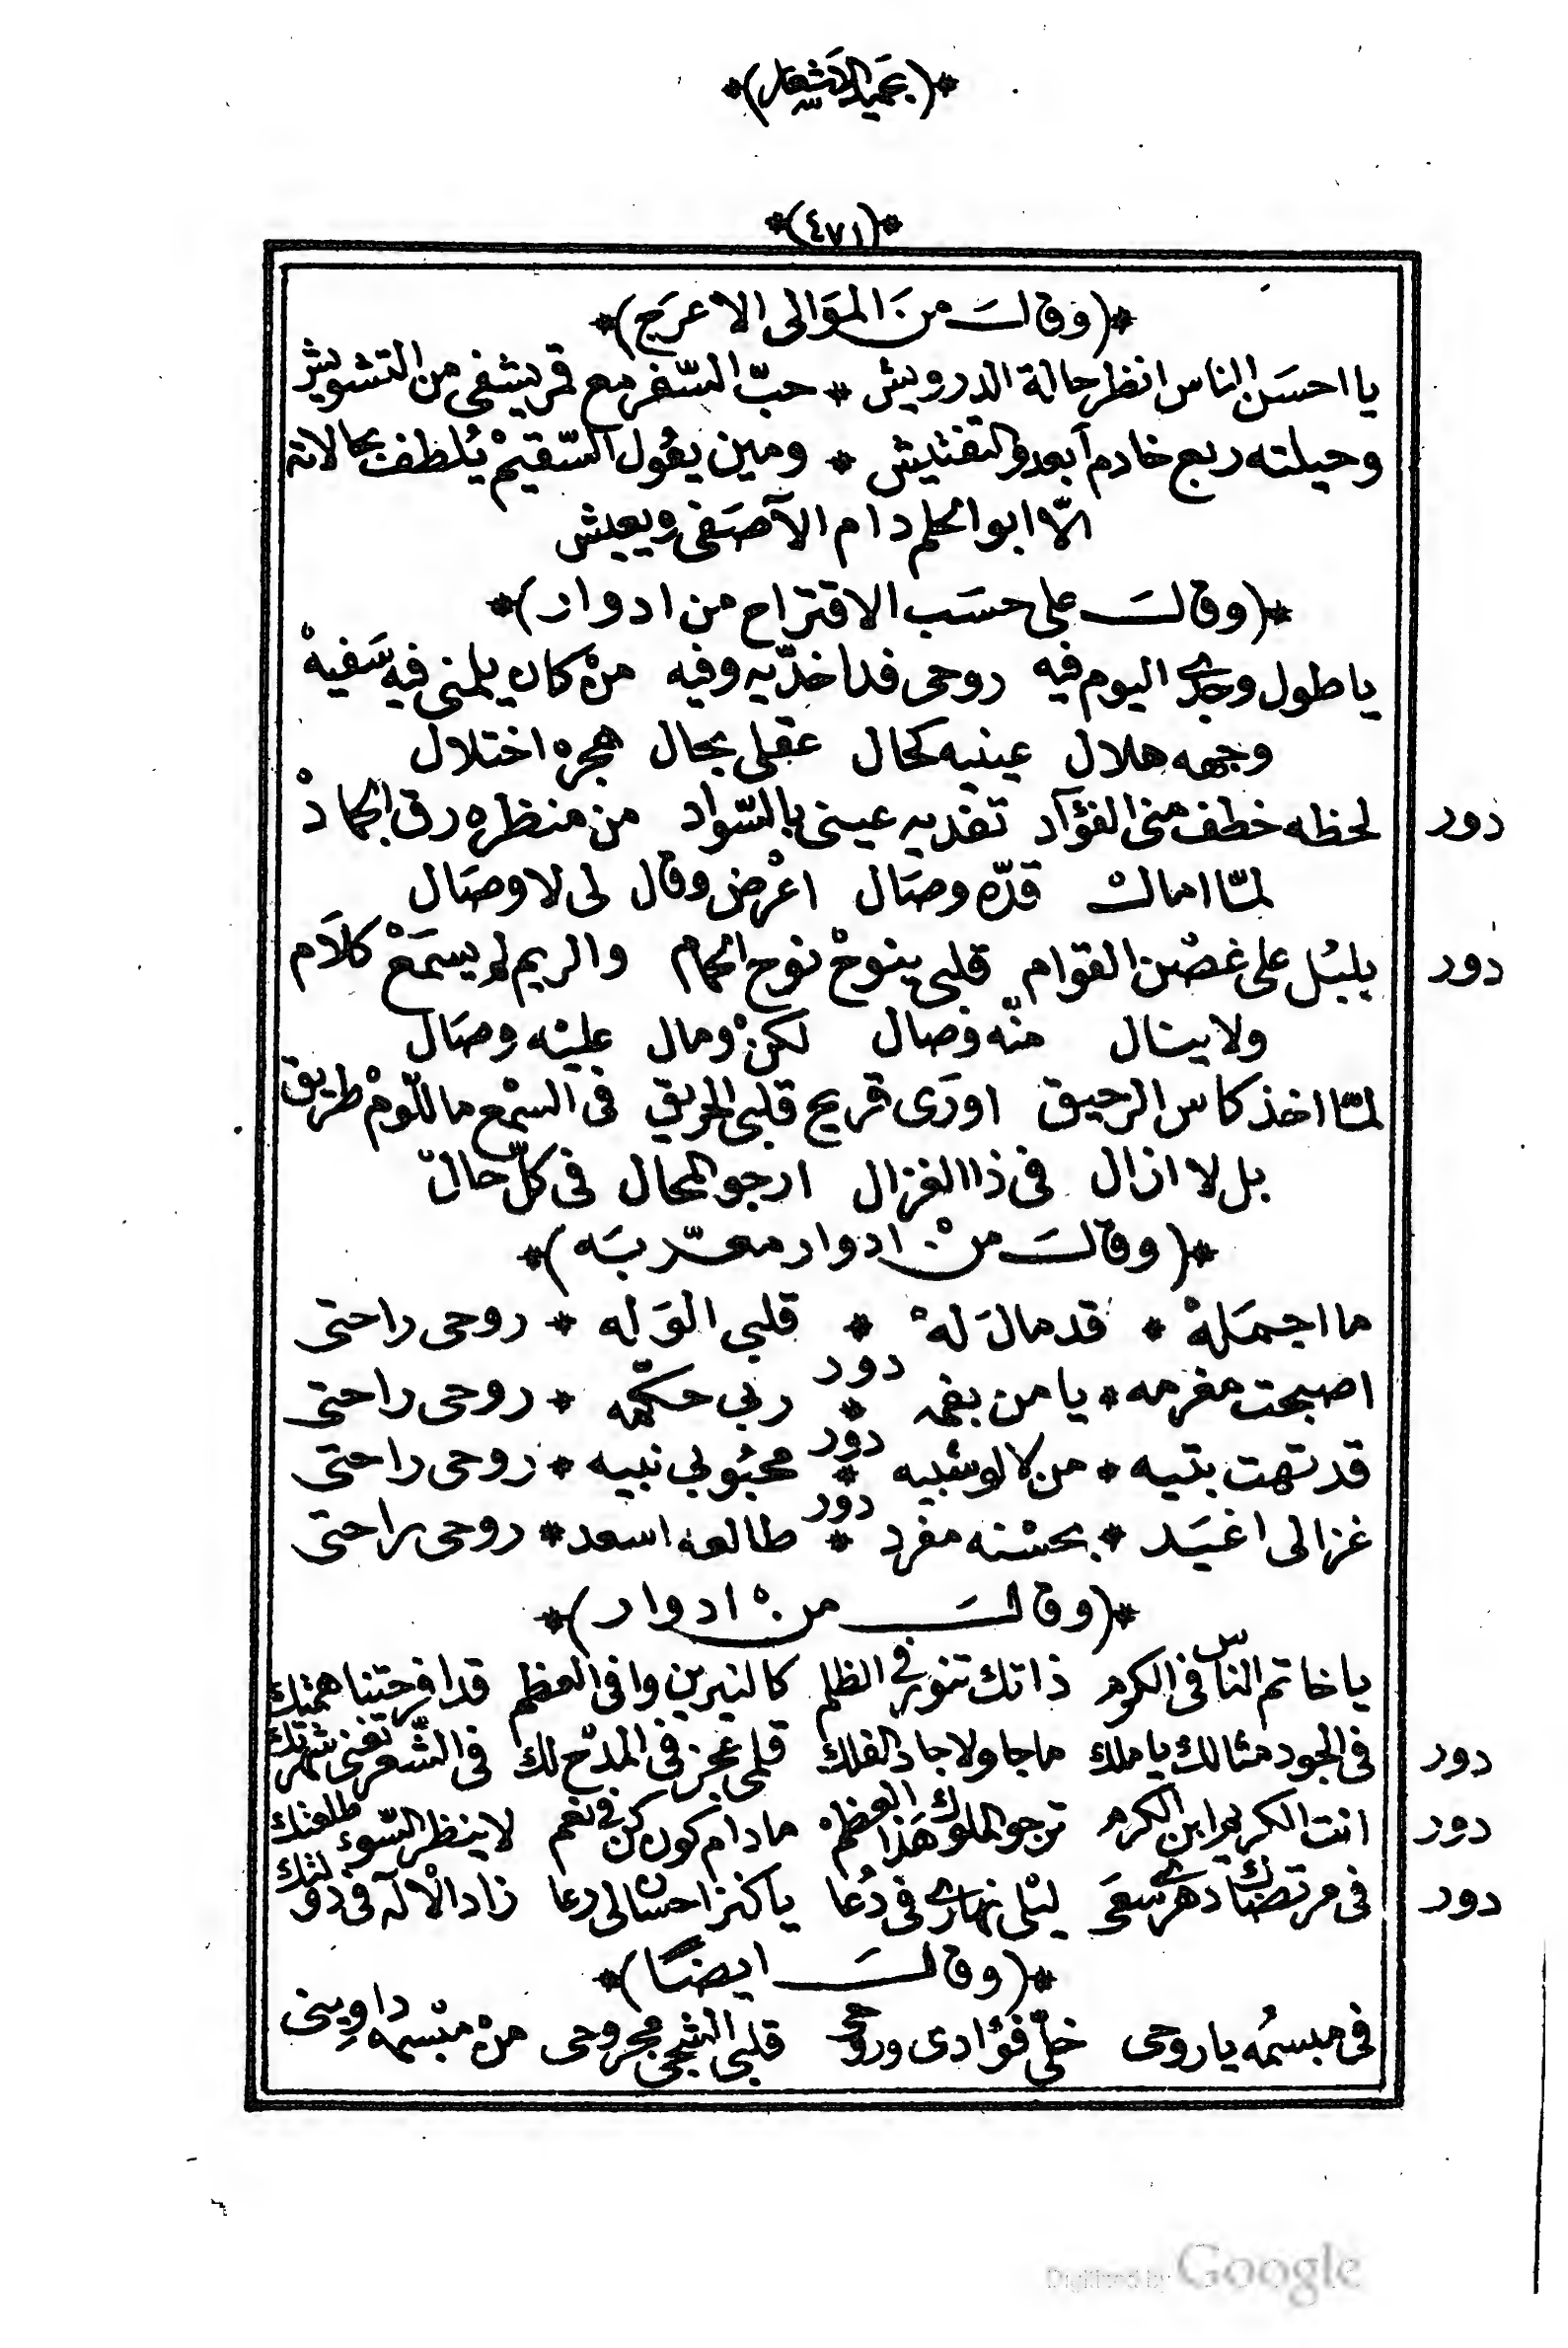 *(بحميد الاشعار)*
*(٤٧١)*
*(وقالَ منَ الموَالى الاعرَج)*
يا احسَن الناس انظر حالة الدرويش * حبّ السّفر مع قمر يشفى من التشويش
وحيلته ربع خادم أبعدو التفتيش * ومين يقُول السّقيمْ يُلطف بحالاته
الّا ابو الحلم دام الآصَفى ويعيش
*(وقالَ على حسَب الاقتراح من ادوار)*
يا طول وجدى اليوم فيه روحى فدا خدّيه وفيه منْ كان يلمنى فيه سَفيهْ
وجهه هلال عينيه كحال عقلى بحال هجره اختلال
دور لحظه خطف منى الفؤاد تفديه عينى بالسّواد من منظره رق الجمادْ
لمّا امال قدّه وصَال اعْرض وقال لى لا وصَال
دور بلبُل على غصْن القوام قلبى ينوحْ نوح الحمام والريم لم يسمَعْ كلاَم
ولا ينال منّه وصال لكنْ ومال عليْه وصَال
لمّا اخذ كاس الرحيق اورَى قريح قلبى الحريق فى السمْع ما للّومْ طريق
بل لا ازال فى ذا الغزال ارجو المحال فى كلّ حال
*(وقالَ منْ ادوار معرّبَه)*
ما اجمَلهْ * قد مالَ لهْ * قلبى الوَلِه * روحى راحتى
دور
اصبحت مغرمه * يا من بفمه * ربى حكّمه * روحى راحتى
دور
قد تهت بتيه * من لا لو شبيه * محبُوبى نبيه * روحى راحتى
دور
غزالى اغيَد * بحسْنه مفرد * طالعه اسعد * روحى راحتى
*(وقالَ منْ ادوار)*
يا خاتم الناس فى الكرم ذاتك تنور فى الظلم كالنيرين وافى العظم قد افرحتنا همتك
دور فى الجود مثالك يا ملك ما جا ولا جاد الفلك قلمى عجز فى المدْح لك فى الشّعر تغنى شهرتك
دور انت الكريم ابن الكرم ترجو الملوك هَذا العظمْ ما دام كون كن فى نعم لا ينظر السّوء طلعتك
دور فى مرتضاك دهرى سعَى ليْلى نهارى فى دُعا يا كنز احسان لى رعا زاد الْاله فى دولتك
*(وقالَ ايضًا)*
فى مبسمُه يا روحى خلّ فؤادى وروحى قلبى الشجى مجروحى منْ مبْسمه داوينى
Digitized by Google